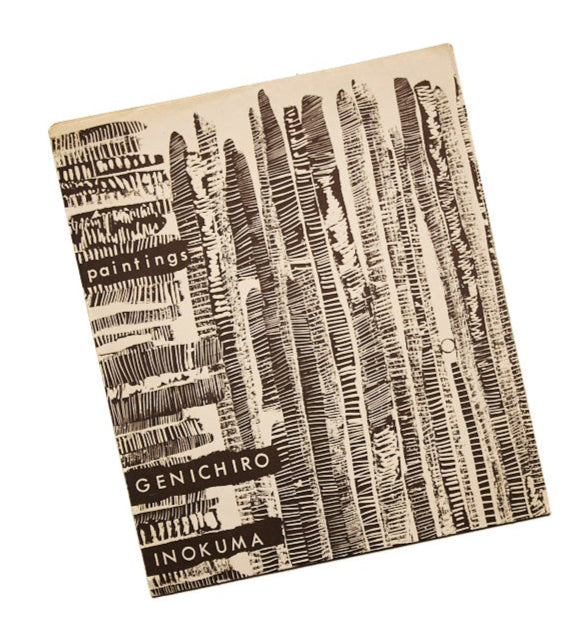 paintings
GENICHIRO
INOKUMA